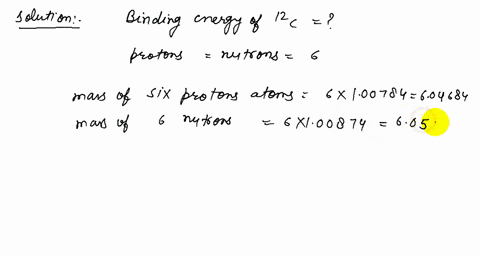 Solution:. Binding energy of ¹²C = ?
protons = nutrons = 6
mass of six protons atoms = 6 X 1.00784 = 6.04684
mass of 6 nutrons = 6 X 1.00874 = 6.05